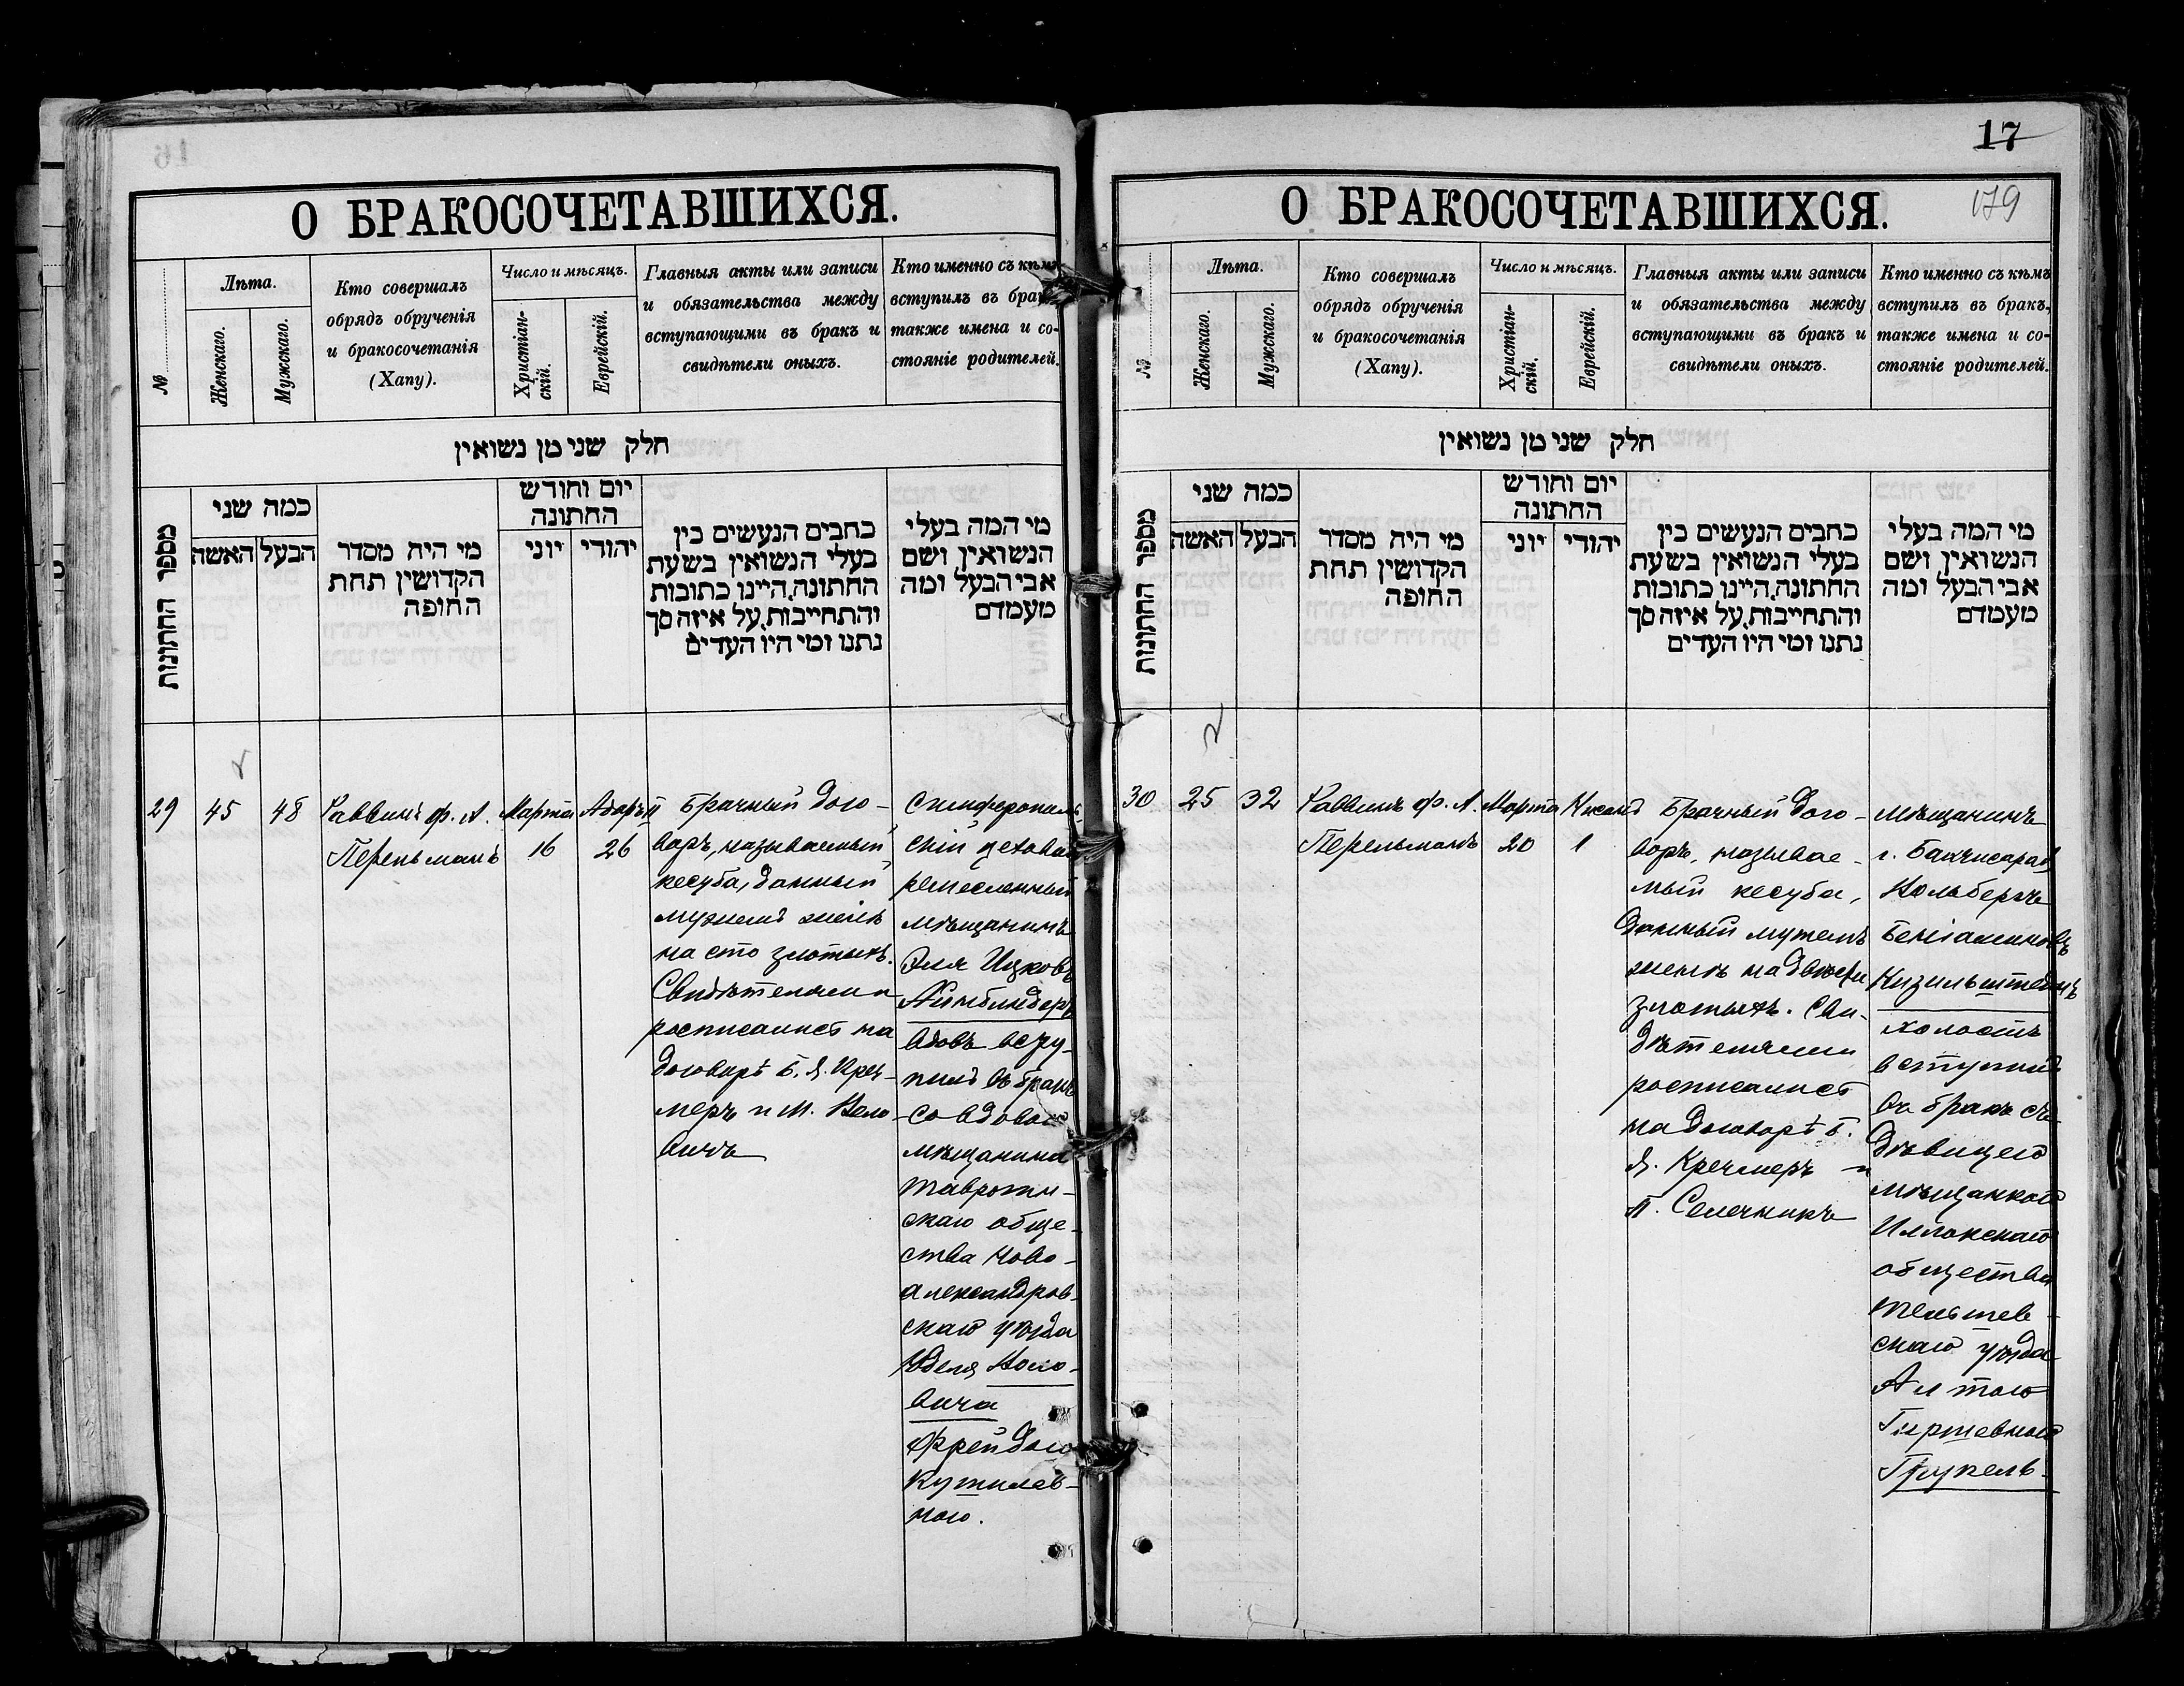 О БРАКОСОЧЕТАВШИХСЯ.
№
Лѣта.
Женскаго.
Мужскаго.
Кто совершалъ
обрядъ обрученія
и бракосочетанія
(Хапу).
Число и мѣсяцъ.
Христіан-
скій.
Еврейскій.
Главныя акты или записи
и обязательства между
вступающими въ бракъ и
свидѣтели оныхъ.
Кто именно съ кѣмъ
вступилъ въ бракъ,
также имена и со-
стояніе родителей.
חלק שני מן נשואין
מספר החתונות
כמה שני
האשה
הבעל
מי היה מסדר
הקדושין תחת
החופה
יום וחודש
החתונה
יוני
יהודי
כתבים הנעשים בין
בעלי הנשואין בשעת
החתונה, היינו כתובות
והתחייבות, על איזה סך
נתנו ומי היו העדים
מי המה בעלי
הנשואין, ושם
אבי הבעל ומה
מעמדם
29
45
48
Раввинъ Ф. А.
Перельманъ
Марта
16
Адаръ II
26
Брачный дого-
воръ, называемый
кесуба, данный
мужемъ женѣ
на сто злотыхъ.
Свидѣтелями
росписались на
договорѣ Б. Я. Креч-
меръ и М. Вело-
вичъ
Симферополь-
скій цеховой
ремесленный
мѣщанинъ
Эля Ицковъ
вдовъ всту-
пилъ въ бракъ
со вдовою
мѣщанина
скаго обще-
ства Ново-
александров-
скаго уѣзда
Юделя
вича
Фрейдою
ною.
17
179
О БРАКОСОЧЕТАВШИХСЯ.
№
Лѣта.
Женскаго.
Мужскаго.
Кто совершалъ
обрядъ обрученія
и бракосочетанія
(Хапу).
Число и мѣсяцъ.
Христіан-
скій.
Еврейскій.
Главныя акты или записи
и обязательства между
вступающими въ бракъ и
свидѣтели оныхъ.
Кто именно съ кѣмъ
вступилъ въ бракъ,
также имена и со-
стояніе родителей.
חלק שני מן נשואין
מספר החתונות
כמה שני
האשה
הבעל
מי היה מסדר
הקדושין תחת
החופה
יום וחודש
החתונה
יוני
יהודי
כתבים הנעשים בין
בעלי הנשואין בשעת
החתונה, היינו כתובות
והתחייבות, על איזה סך
נתנו ומי היו העדים
מי המה בעלי
הנשואין, ושם
אבי הבעל ומה
מעמדם
30
25
32
Раввинъ Ф. А.
Перельманъ
Марта
20
Нисанъ
1
Брачный дого-
воръ, называе-
мый кесуба,
данный мужемъ
женѣ на двѣсти
злотыхъ. Сви-
дѣтелями
росписались
на договорѣ Б.
Я. Кречмеръ и
П. Селечникъ
мѣщанинъ
г. Бахчисарая
Кизильштейнъ
холостъ
вступилъ
въ бракъ съ
дѣвицею
мѣщанкою
Иллокскаго
общества
Тельшев-
скаго уѣзда
Алтою
Гиршевною